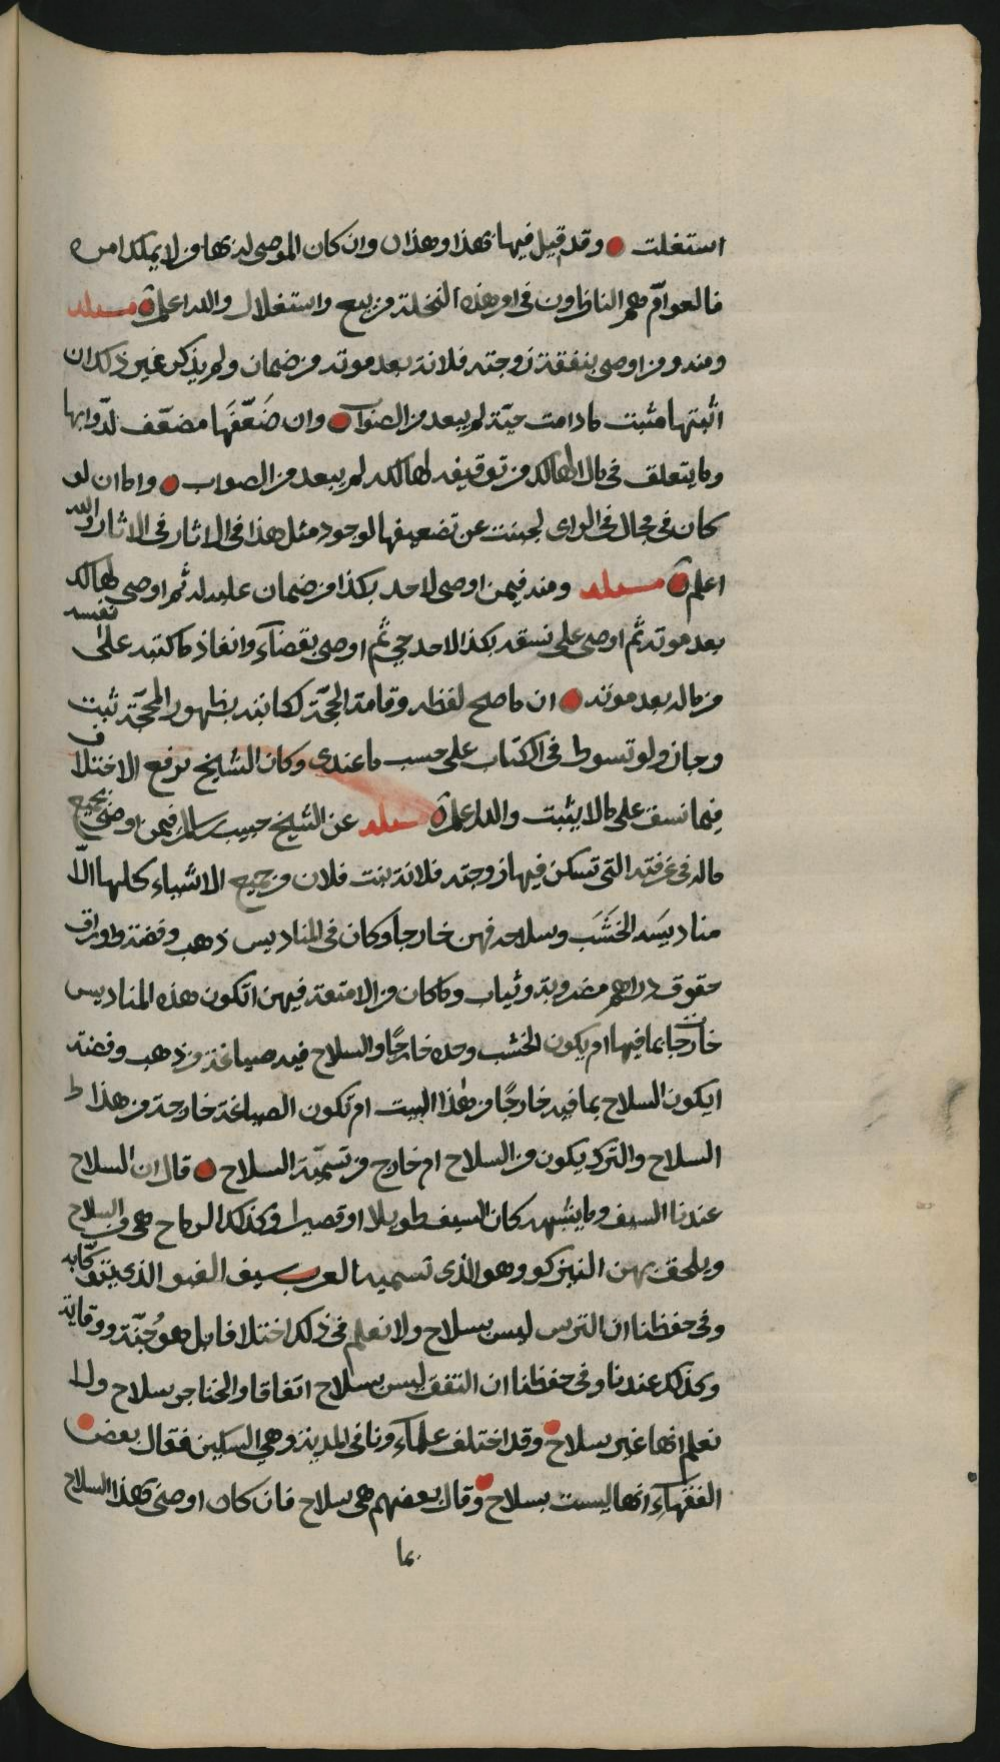 استغلت وقد قيل فيها بهذا وهذا وان كان الموصى له بها من لا يملك امره
فالعوام هم الناظرون في امر هذه النخلة من بيع واستغلال والله اعلم مسئلة
ومنه ومن اوصى بنفقة زوجته فلانة بعد موته من ضمان ولم يذكر غير ذلك ان
اثبتها مثبت ما دامت حيّة لم يبعد من الصواب وان ضَعّفَها مضعّف
وما يتعلق في مال الهالك من توقيفه لهالكه لم يبعد من الصواب واما ان لو
كان في مجال في الراى لجبنت عن تضعيفها لوجود مثل هذا في الاثار في الاثار والله
اعلم مسئلة ومنه فيمن اوصى لاحد بكذا من ضمان عليه له ثم اوصى الهالك
بعد موته ثم اوصى على نسقه بكذا لاحد حي ثم اوصى بقضاء وانفاذ ما كتبه على نفسه
من ماله بعد موته ان ما صلح لفظه وقامة الحجّة لكاتبه بظهور المحجّة ثبت
وجاز ولو توسط في الكتاب على حسب ما عندي وكان الشيخ يرفع الاختلاف
فيما نسق على ما لا يثبت والله اعلم مسئلة عن الشيخ حبيب سالم فيمن اوصى بجميع
ماله في غرفته التي تسكن فيها زوجته فلانة بنت فلان من جميع الاشياء كلها الّا
مناديسَه الخَشَب وسلاحه فهن خارجا وكان في المناديس ذهب وفضة واوراق
حقوق دراهم مضروبة وثياب وما كان من الامتعة فيهن اتكون هذه المناديس
خارجات بما فيها ام يكون الخشب وحده خارجًا والسلاح فيه صياغة من ذهب وفضة
ايكون السلاح بما فيه خارجًا من هذا البيت ام تكون الصياغة خارجة من هذا
السلاح والترك يكون من السلاح ام خارج من تسميّة السلاح قال ان السلاح
عندنا السيف وما يشبهه كان السيف طويلا او قصيرا وكذلك الرماح هي من السلاح
ويلحق بهن النيزكو وهو الذي تسميه العرب سيف الذي يتوكّأ به
وفي حفظنا ان الترس ليس بسلاح ولا نعلم في ذلك اختلافا بل هو جُنّة ووقاية
وكذلك عندنا وفي حفظنا ان التفق ليس بسلاح اتفاقا والخناجر سلاح ولا
نعلم انها غير سلاح وقد اختلف علماءونا في المدية وهي السكين فقال بعض
الفقهاء انها ليست بسلاح وقال بعضهم هي سلاح فان كان اوصى بهذا السلاح
بما